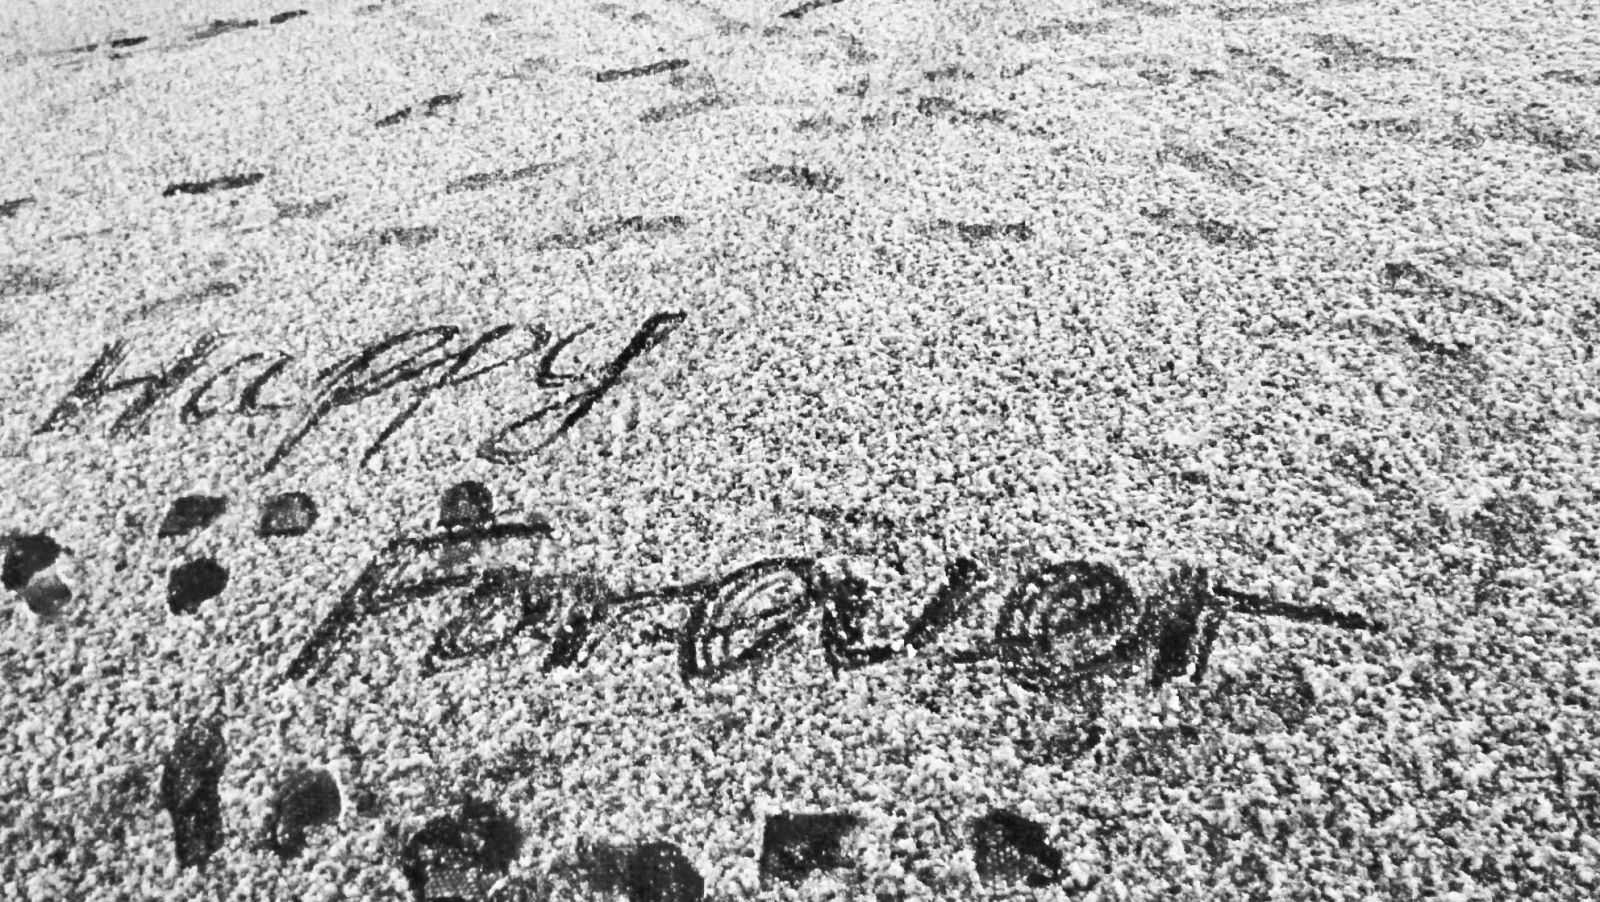 Happy
Forever